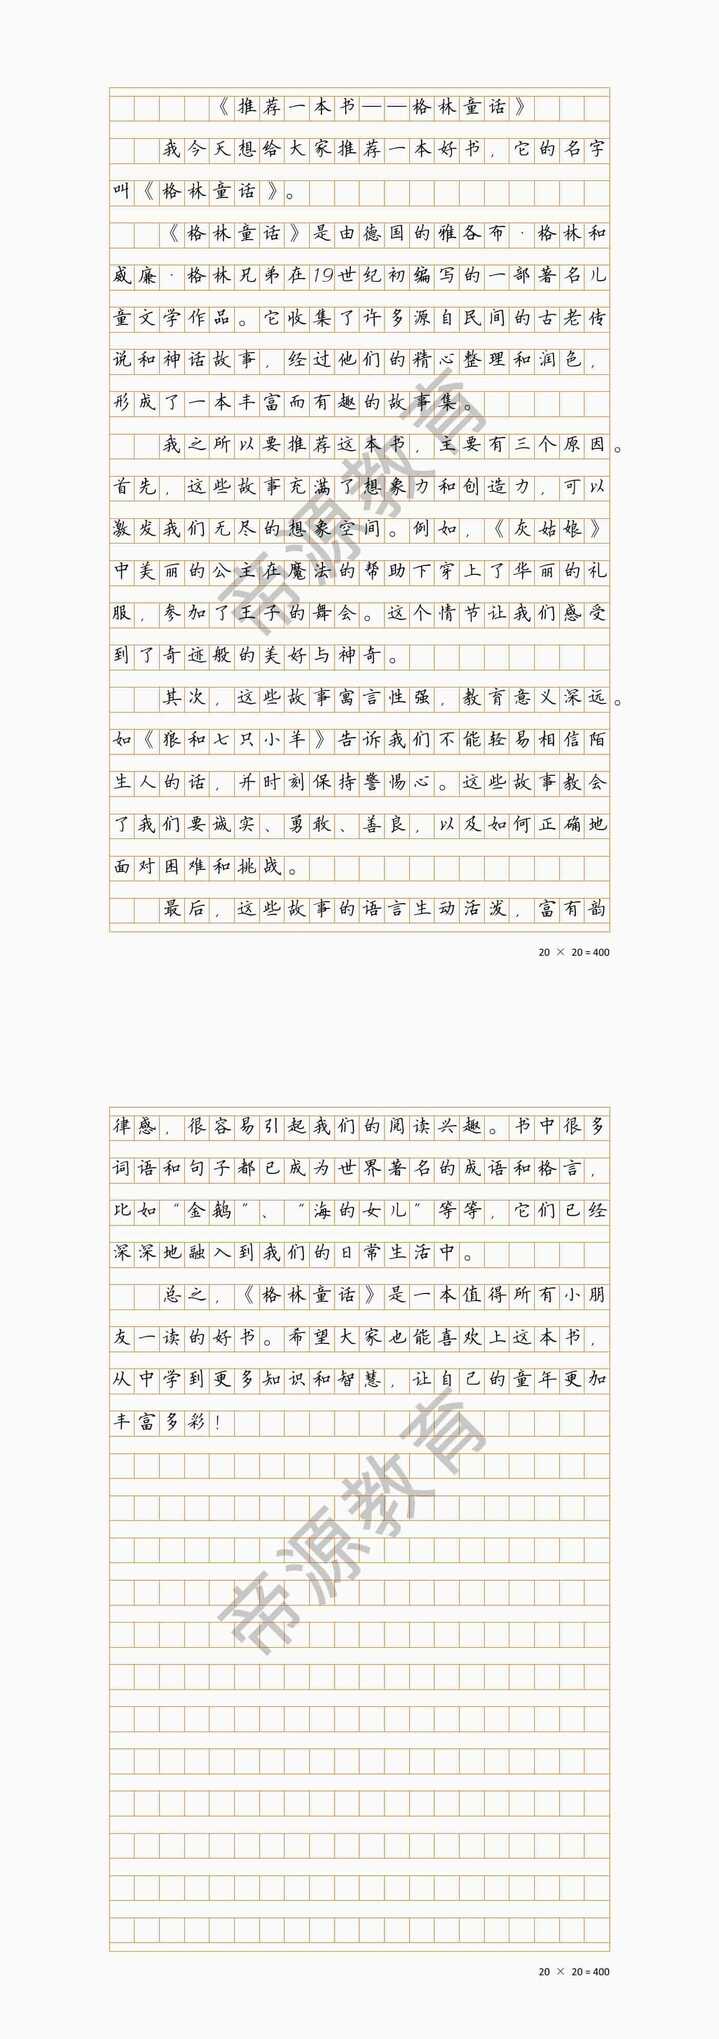 《推荐一本书——格林童话》
我今天想给大家推荐一本好书，它的名字
叫《格林童话》。
《格林童话》是由德国的雅各布·格林和
威廉·格林兄弟在19世纪初编写的一部著名儿
童文学作品。它收集了许多源自民间的古老传
说和神话故事，经过他们的精心整理和润色，
形成了一本丰富而有趣的故事集。
我之所以要推荐这本书，主要有三个原因。
首先，这些故事充满了想象力和创造力，可以
激发我们无尽的想象空间。例如，《灰姑娘》
中美丽的公主在魔法的帮助下穿上了华丽的礼
服，参加了王子的舞会。这个情节让我们感受
到了奇迹般的美好与神奇。
其次，这些故事寓言性强，教育意义深远。
如《狼和七只小羊》告诉我们不能轻易相信陌
生人的话，并时刻保持警惕心。这些故事教会
了我们要诚实、勇敢、善良，以及如何正确地
面对困难和挑战。
最后，这些故事的语言生动活泼，富有韵
20 × 20 = 400
律感，很容易引起我们的阅读兴趣。书中很多
词语和句子都已成为世界著名的成语和格言，
比如“金鹅”、“海的女儿”等等，它们已经
深深地融入到我们的日常生活中。
总之，《格林童话》是一本值得所有小朋
友一读的好书。希望大家也能喜欢上这本书，
从中学到更多知识和智慧，让自己的童年更加
丰富多彩！
20 × 20 = 400
帝源教育
帝源教育